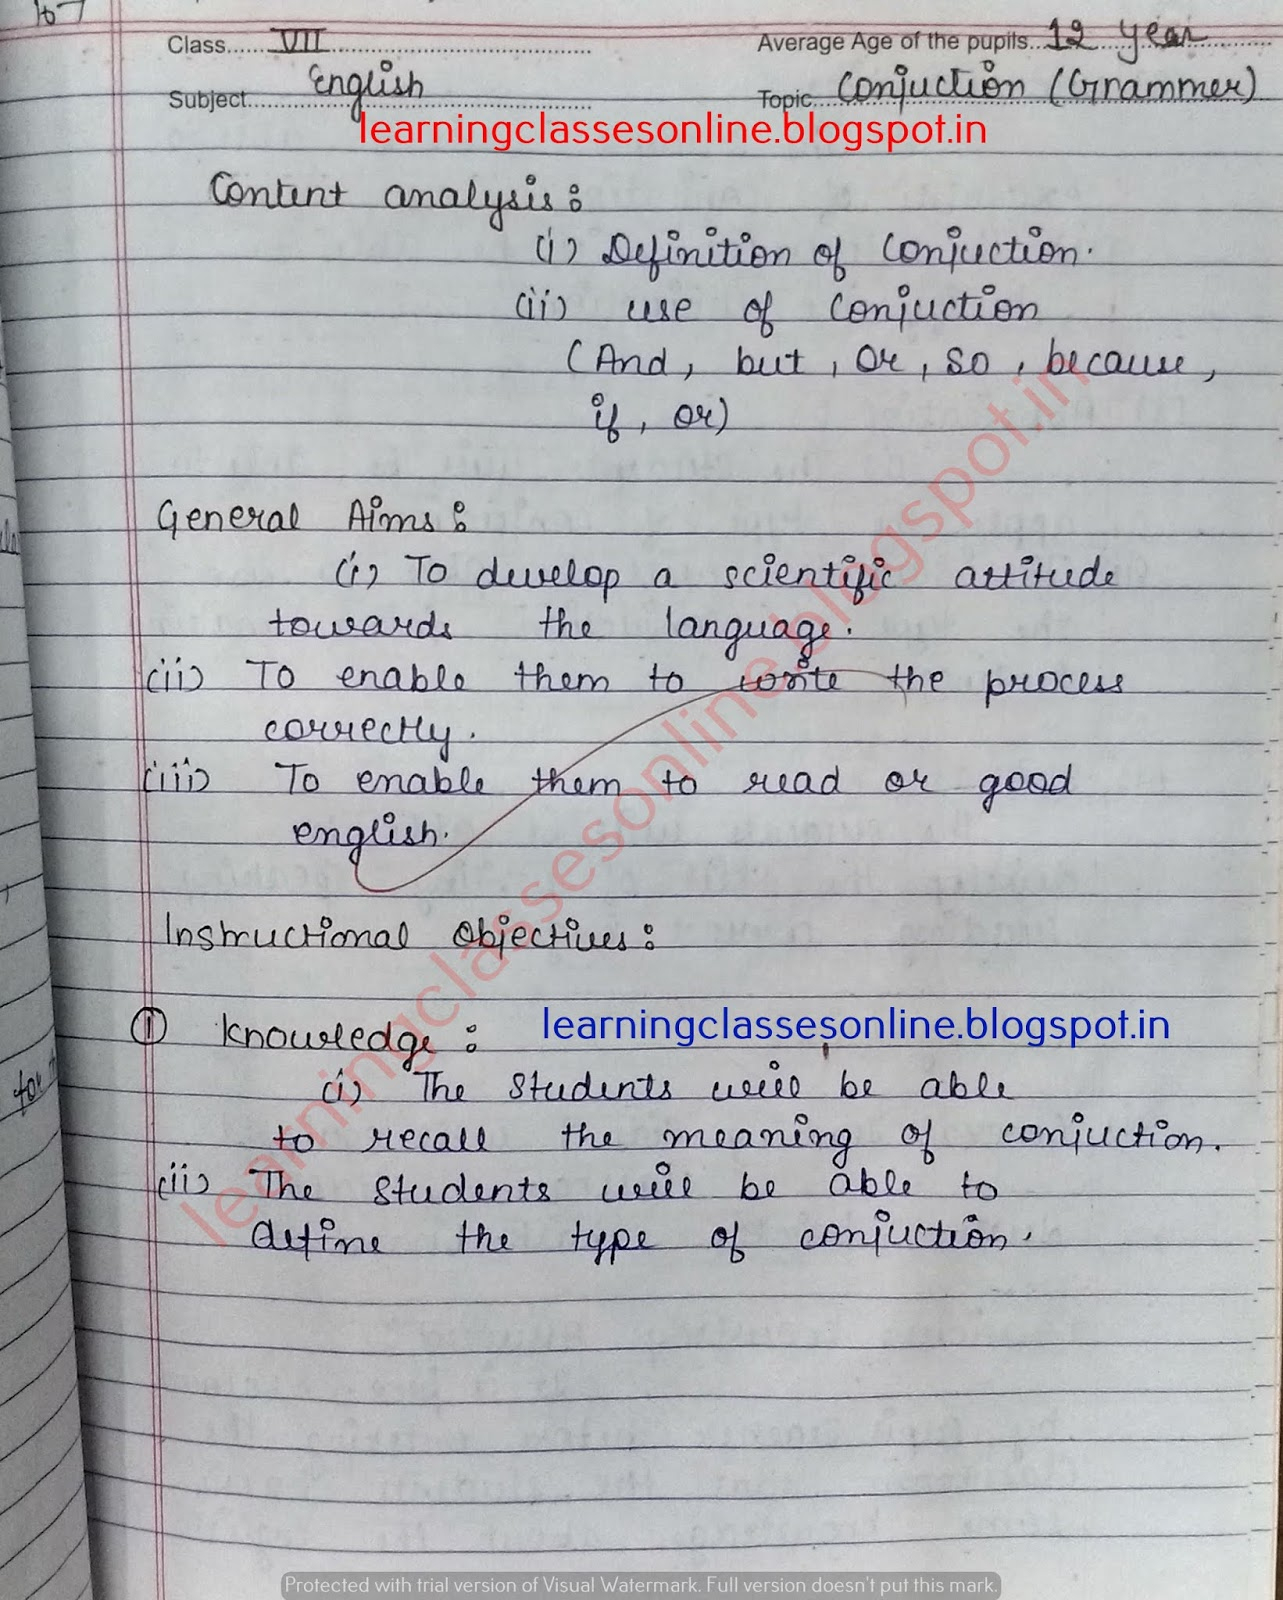 Class...... VII
Average Age of the pupils... 12 year
Subject...... English
Topic.... Conjuction (Grammer)
learningclassesonline.blogspot.in
Content analysis :
(i) Definition of Conjuction.
(ii) use of conjuction
(And, but, or, so, because,
if, or)
General Aims :
(i) To develop a scientific attitude
towards the language.
(ii) To enable them to write the process
correctly.
(iii) To enable them to read or good
english.
Instructional Objectives :
① Knowledge :
learningclassesonline.blogspot.in
(i) The students will be able
to recall the meaning of conjuction.
(ii) The students will be able to
define the type of conjuction.
learningclassesonline.blogspot.in
Protected with trial version of Visual Watermark. Full version doesn't put this mark.